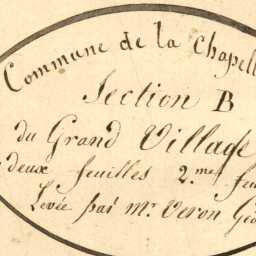 Commune de la Chapell
Section B
du Grand Village
deux feuilles 2.me feu
Levée par Mr Veron Géo